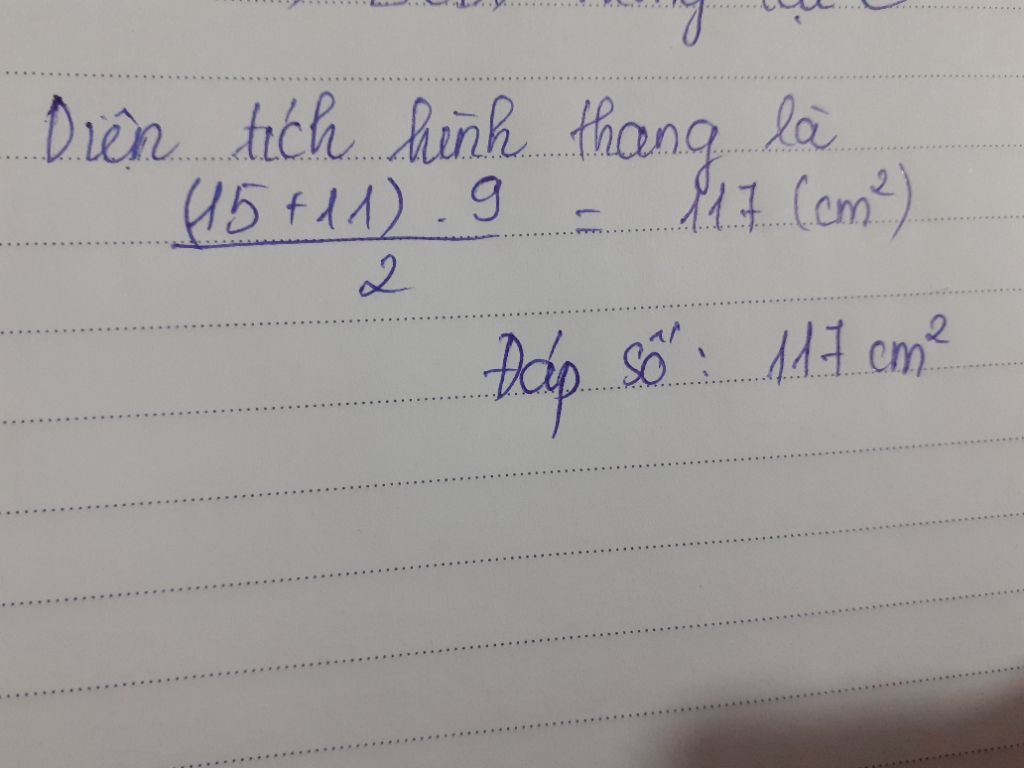 Diện tích hình thang là
(15 + 11) . 9 / 2 = 117 (cm²)
Đáp số: 117 cm²